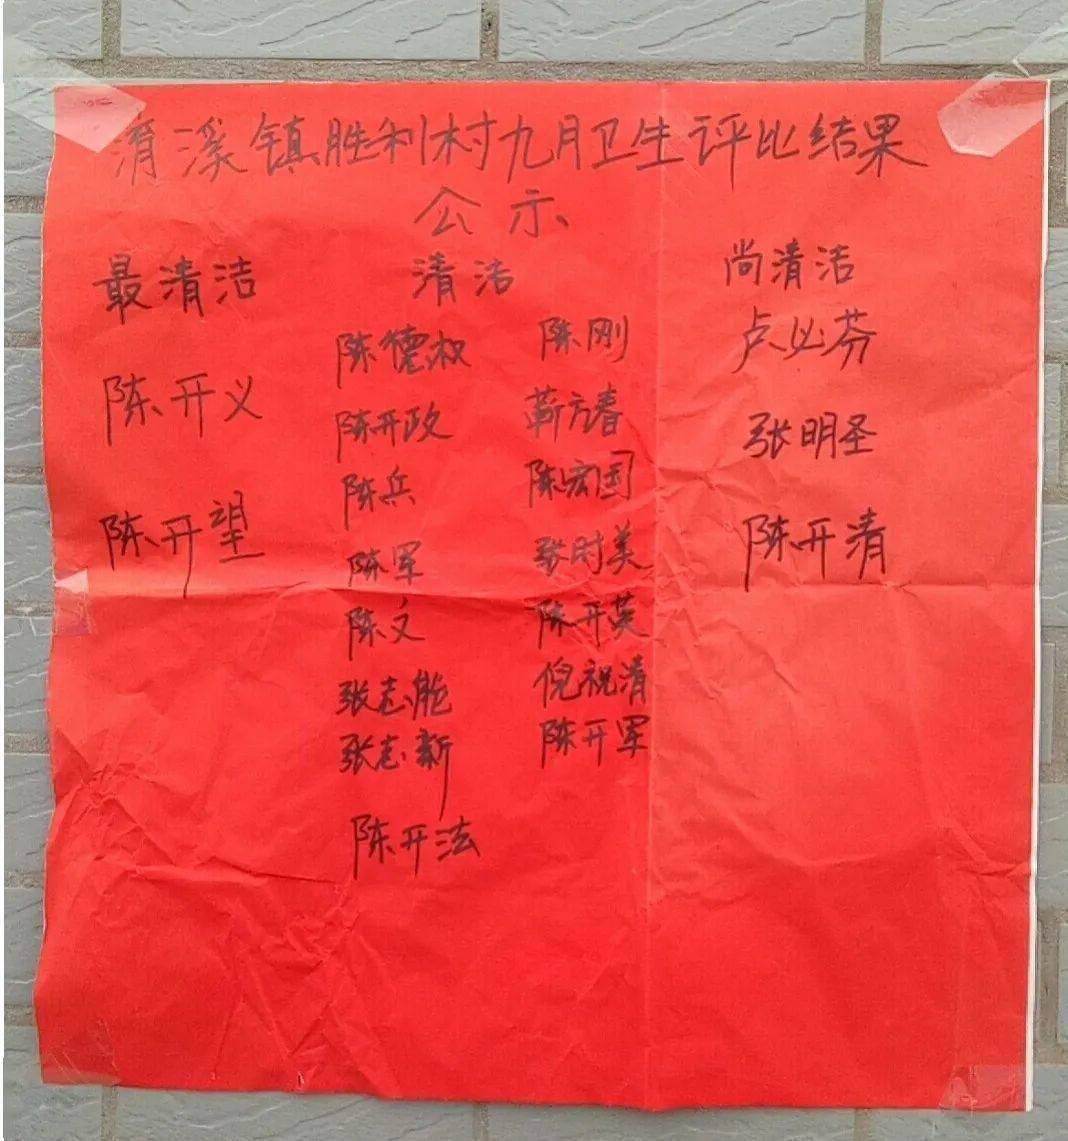 淯溪镇胜利村九月卫生评比结果
公示
最清洁 清洁 尚清洁
陈德淑 陈刚 卢必芬
陈开义 陈开政 靳方春 张明圣
陈兵 陈宏国
陈开望 陈军 张时美 陈开清
陈文 陈开英
张志能 倪祝清
张志新 陈开军
陈开法